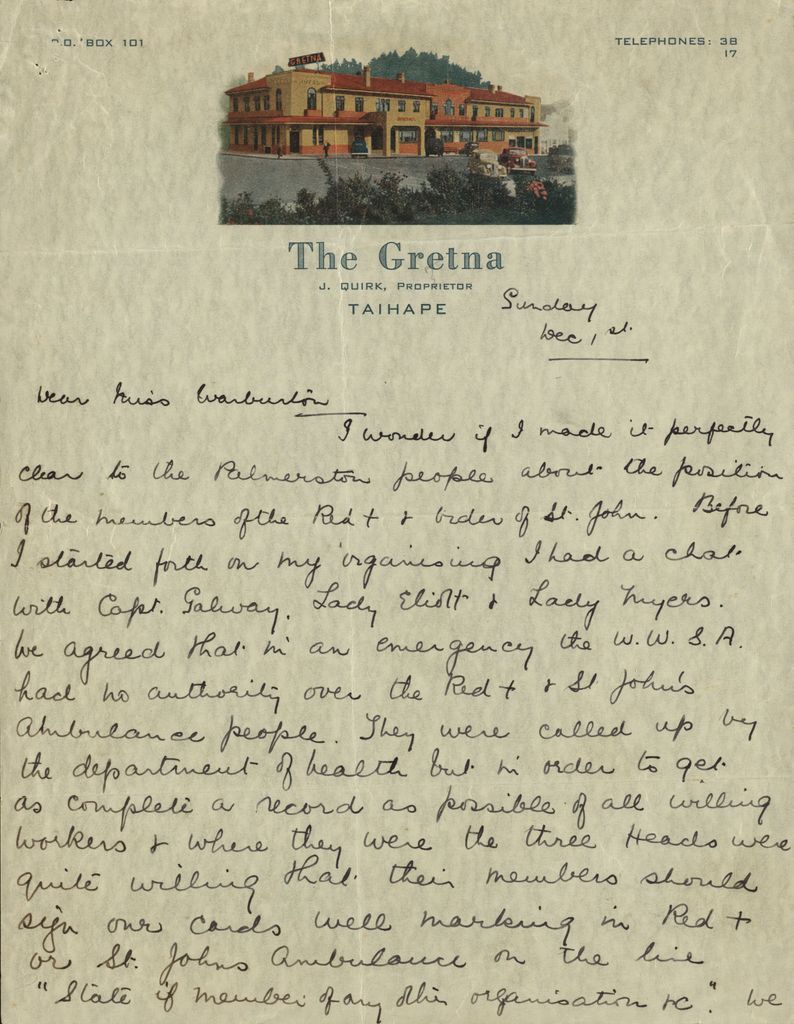 P.O. BOX 101
TELEPHONES: 38
17
GRETNA
The Gretna
J. QUIRK, PROPRIETOR
TAIHAPE
Sunday
Dec 1st.
Dear Miss Warburton
I wonder if I made it perfectly
clear to the Palmerston people about the position
of the members of the Red + & Order of St. John. Before
I started forth on my organising I had a chat
with Capt. Galway, Lady Eliott & Lady Myers.
We agreed that in an emergency the W.W.S.A.
had no authority over the Red + & St John's
Ambulance people. They were called up by
the department of health but in order to get
as complete a record as possible of all willing
workers & where they were the three Heads were
quite willing that their members should
sign our cards well marking in Red +
or St. Johns Ambulance on the line
"State if member of any other organisation &c". We